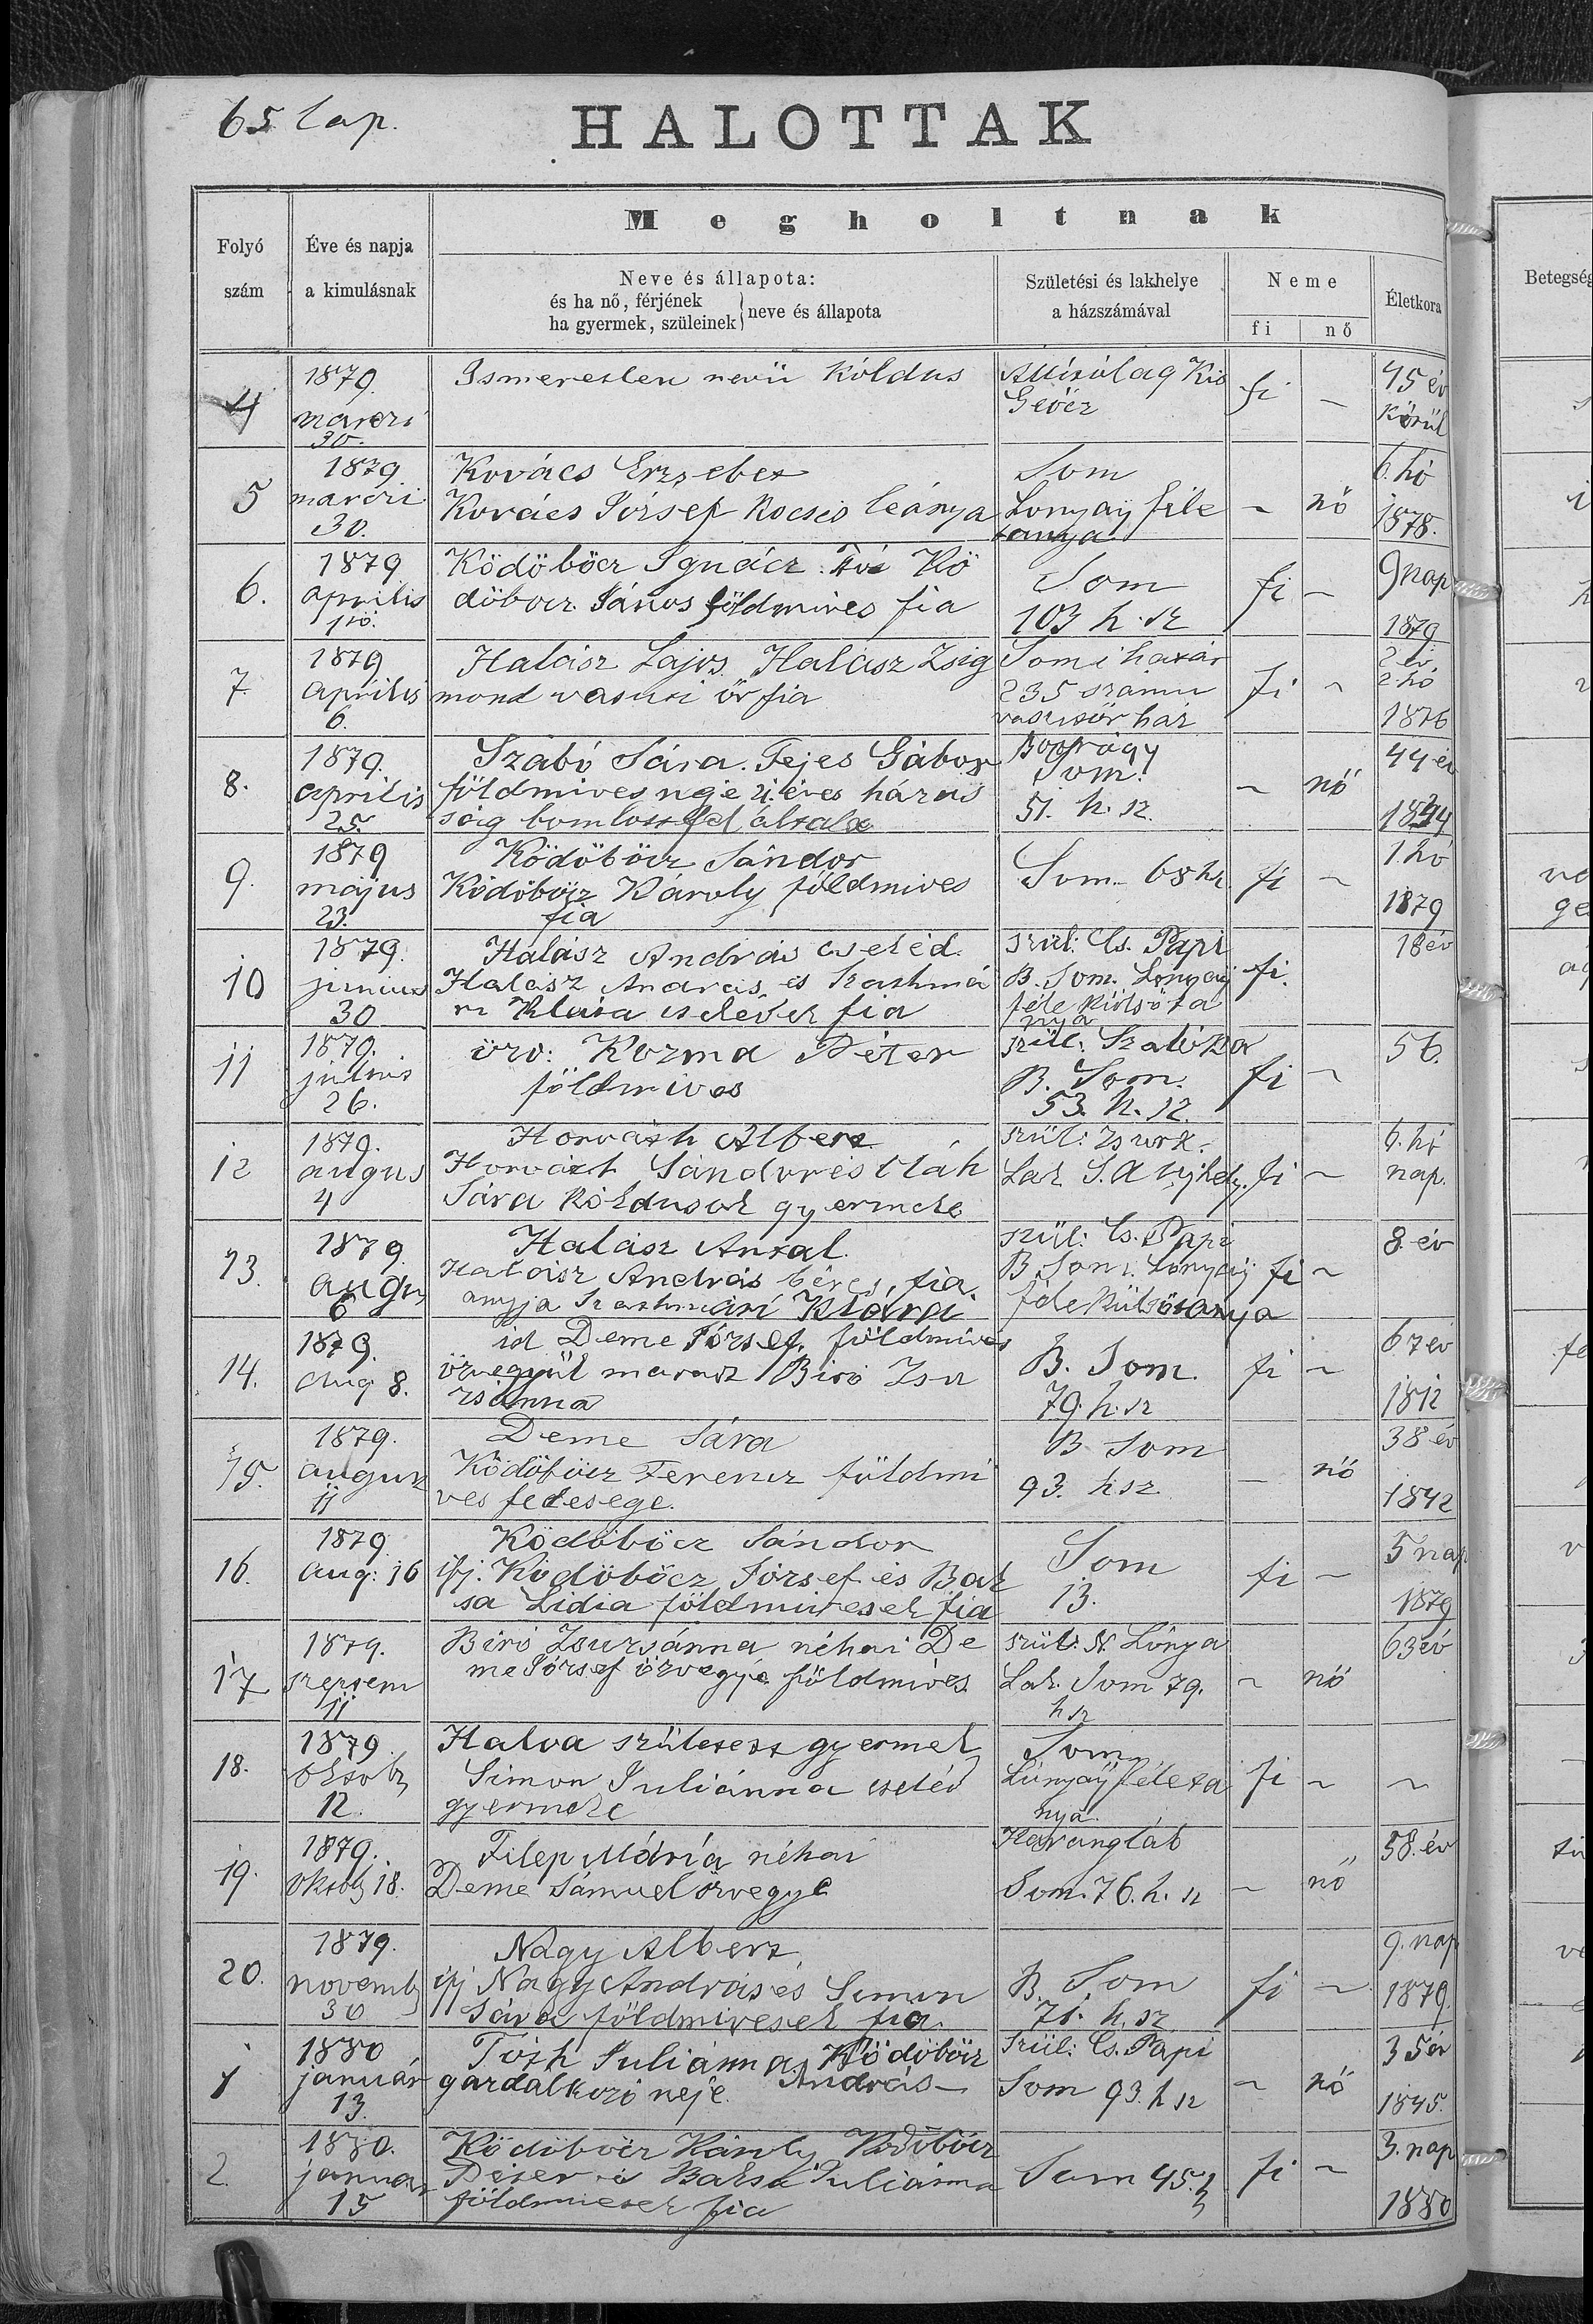 65 lap.
HALOTTAK
Megholtnak
Folyó szám
Éve és napja a kimulásnak
Neve és állapota:
és ha nő, férjének
ha gyermek, szüleinek } neve és állapota
Születési és lakhelye a házszámával
Neme
fi
nő
Életkora
Betegség
4
1879
marczi
30.
Ismeretlen nevü Koldus
Állitólag Kis
Gejőcz
fi
–
45 év
Körül
5
1879
marczi
30.
Kovács Erzsebet
Kovács József Kocsis leánya
Som
Lonyay féle
tanya
–
nő
6 hó
1878.
6.
1879
aprilis
Ködöböcz Ignácz.
döböcz János földmives fia
Som
103 h. sz
fi
–
9 nap
1879
7
1879
Aprilis
6.
Halász Lajos Halász Zsig
mond vasuti őr fia
Somi határ
235 számu
vasutiőr ház
fi
–
2 év
2 hó
1876
8.
1879.
Aprilis
25.
Szabó Sára. Fejes Gábor
földmives neje 21. éves házas
ság bomlott fel általa
Som.
51. h. sz.
–
nő
44 év
9.
1879
május
23.
Ködöböcz Sándor
Ködöböcz Károly földmives
fia
Som. 68 hz
fi
–
1 hó
1879
10
1879.
junius
30
Halász András cseléd.
Halász András és Szathmá
ri Klára cselédek fia
szül: Cs. Papi
B. Som. Lonyay
féle Külsőta
nya
fi.
18 év
11
1879.
julius
26.
özv: Kozma Péter
földmives
szül: Szalóka
B. Som.
53. h. sz.
fi
–
56.
12
1879.
augus
4
Horváth Albert
Horváth Sándor és Oláh
Sára Koldusok gyermeke
szül: Zsurk.
Lak. S. A Ujhely.
fi
–
6. hó
nap.
13.
1879
augus
6
Halász Antal.
Halász András béres fia.
anyja Szathmári Klára
szül: Cs. Papi
B. Som. Lonyay
féle Külsőtanya
fi
–
8. év
14.
1879.
Aug 8.
id Deme József. földmives
özvegyül maradt Biró Zsu
zsánna
B. Som.
79. h. sz
fi
–
67 év
1812
15.
1879.
august
11
Deme Sára
Ködöböcz Ferencz földmi
ves felesége.
B Som
93. hsz.
–
nő
38 év
1842
16.
1879
Aug: 16
Ködöböcz Sándor
ifj. Ködöböcz József és Bak
sa Lidia földmivesek fia
Som
13.
fi
–
5 nap
1879
17
1879.
szeptem
11
Biró Zsuzsánna néhai De
me József özvegye földmives.
szül: N. Lónya
Lak. Som 79.
hsz
–
nő
63 év
18.
1879.
oktobr
12.
Halva született gyermek
Simon Juliánna cseléd
gyermeke
Som
Lónyay féle ta
nya.
fi
–
–
19.
1879.
Oktob 18.
Filep Mária néhai
Deme Sámuel özvegye
Harangláb
Som. 76. h. sz
–
nő
58. év
20.
1879.
novemb
30
Nagy Albert
ifj Nagy András és Simon
Sára földmivesek fia.
B. Som
71. h. sz
fi
–
9. nap
1879.
1
1880
január
13.
Tóth Juliánna. Ködöböcz
gazdálkozó neje. András –
szül: Cs. Papi
Som 93. h sz
–
nő
35 év
1845.
2.
1880.
januar
15
Ködöböcz Károly Ködöböcz
Péter és Baksa Juliánna
földmivesek fia
Som 45.
fi
–
3. nap
1880